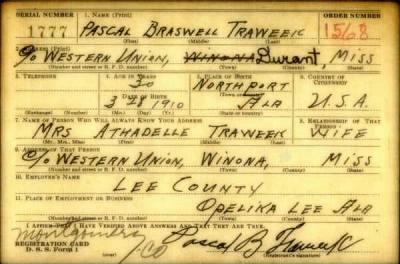 SERIAL NUMBER 1. NAME (Print) ORDER NUMBER
1777 PASCAL BRASWELL TRAWEEK 1568
(First) (Middle) (Last)
2. ADDRESS (Print)
C/O WESTERN UNION, WINONA Durant, MISS
(Number and street or R. F. D. number) (Town) (County) (State)
3. TELEPHONE 4. AGE IN YEARS 5. PLACE OF BIRTH 6. COUNTRY OF CITIZENSHIP
30 NORTHPORT
DATE OF BIRTH (Town or county)
3 21 1910 ALA U.S.A.
(Exchange) (Number) (Mo.) (Day) (Yr.) (State or country)
7. NAME OF PERSON WHO WILL ALWAYS KNOW YOUR ADDRESS 8. RELATIONSHIP OF THAT PERSON
MRS ATHADELLE TRAWEEK WIFE
(Mr., Mrs., Miss) (First) (Middle) (Last)
9. ADDRESS OF THAT PERSON
C/O WESTERN UNION, WINONA, MISS
(Number and street or R. F. D. number) (Town) (County) (State)
10. EMPLOYER'S NAME
LEE COUNTY
11. PLACE OF EMPLOYMENT OR BUSINESS
OPELIKA LEE ALA
(Number and street or R. F. D. number) (Town) (County) (State)
I AFFIRM THAT I HAVE VERIFIED ABOVE ANSWERS AND THAT THEY ARE TRUE.
Montgomery
REGISTRATION CARD CO Pascal B Traweek
D. S. S. Form 1 (Registrant's signature)